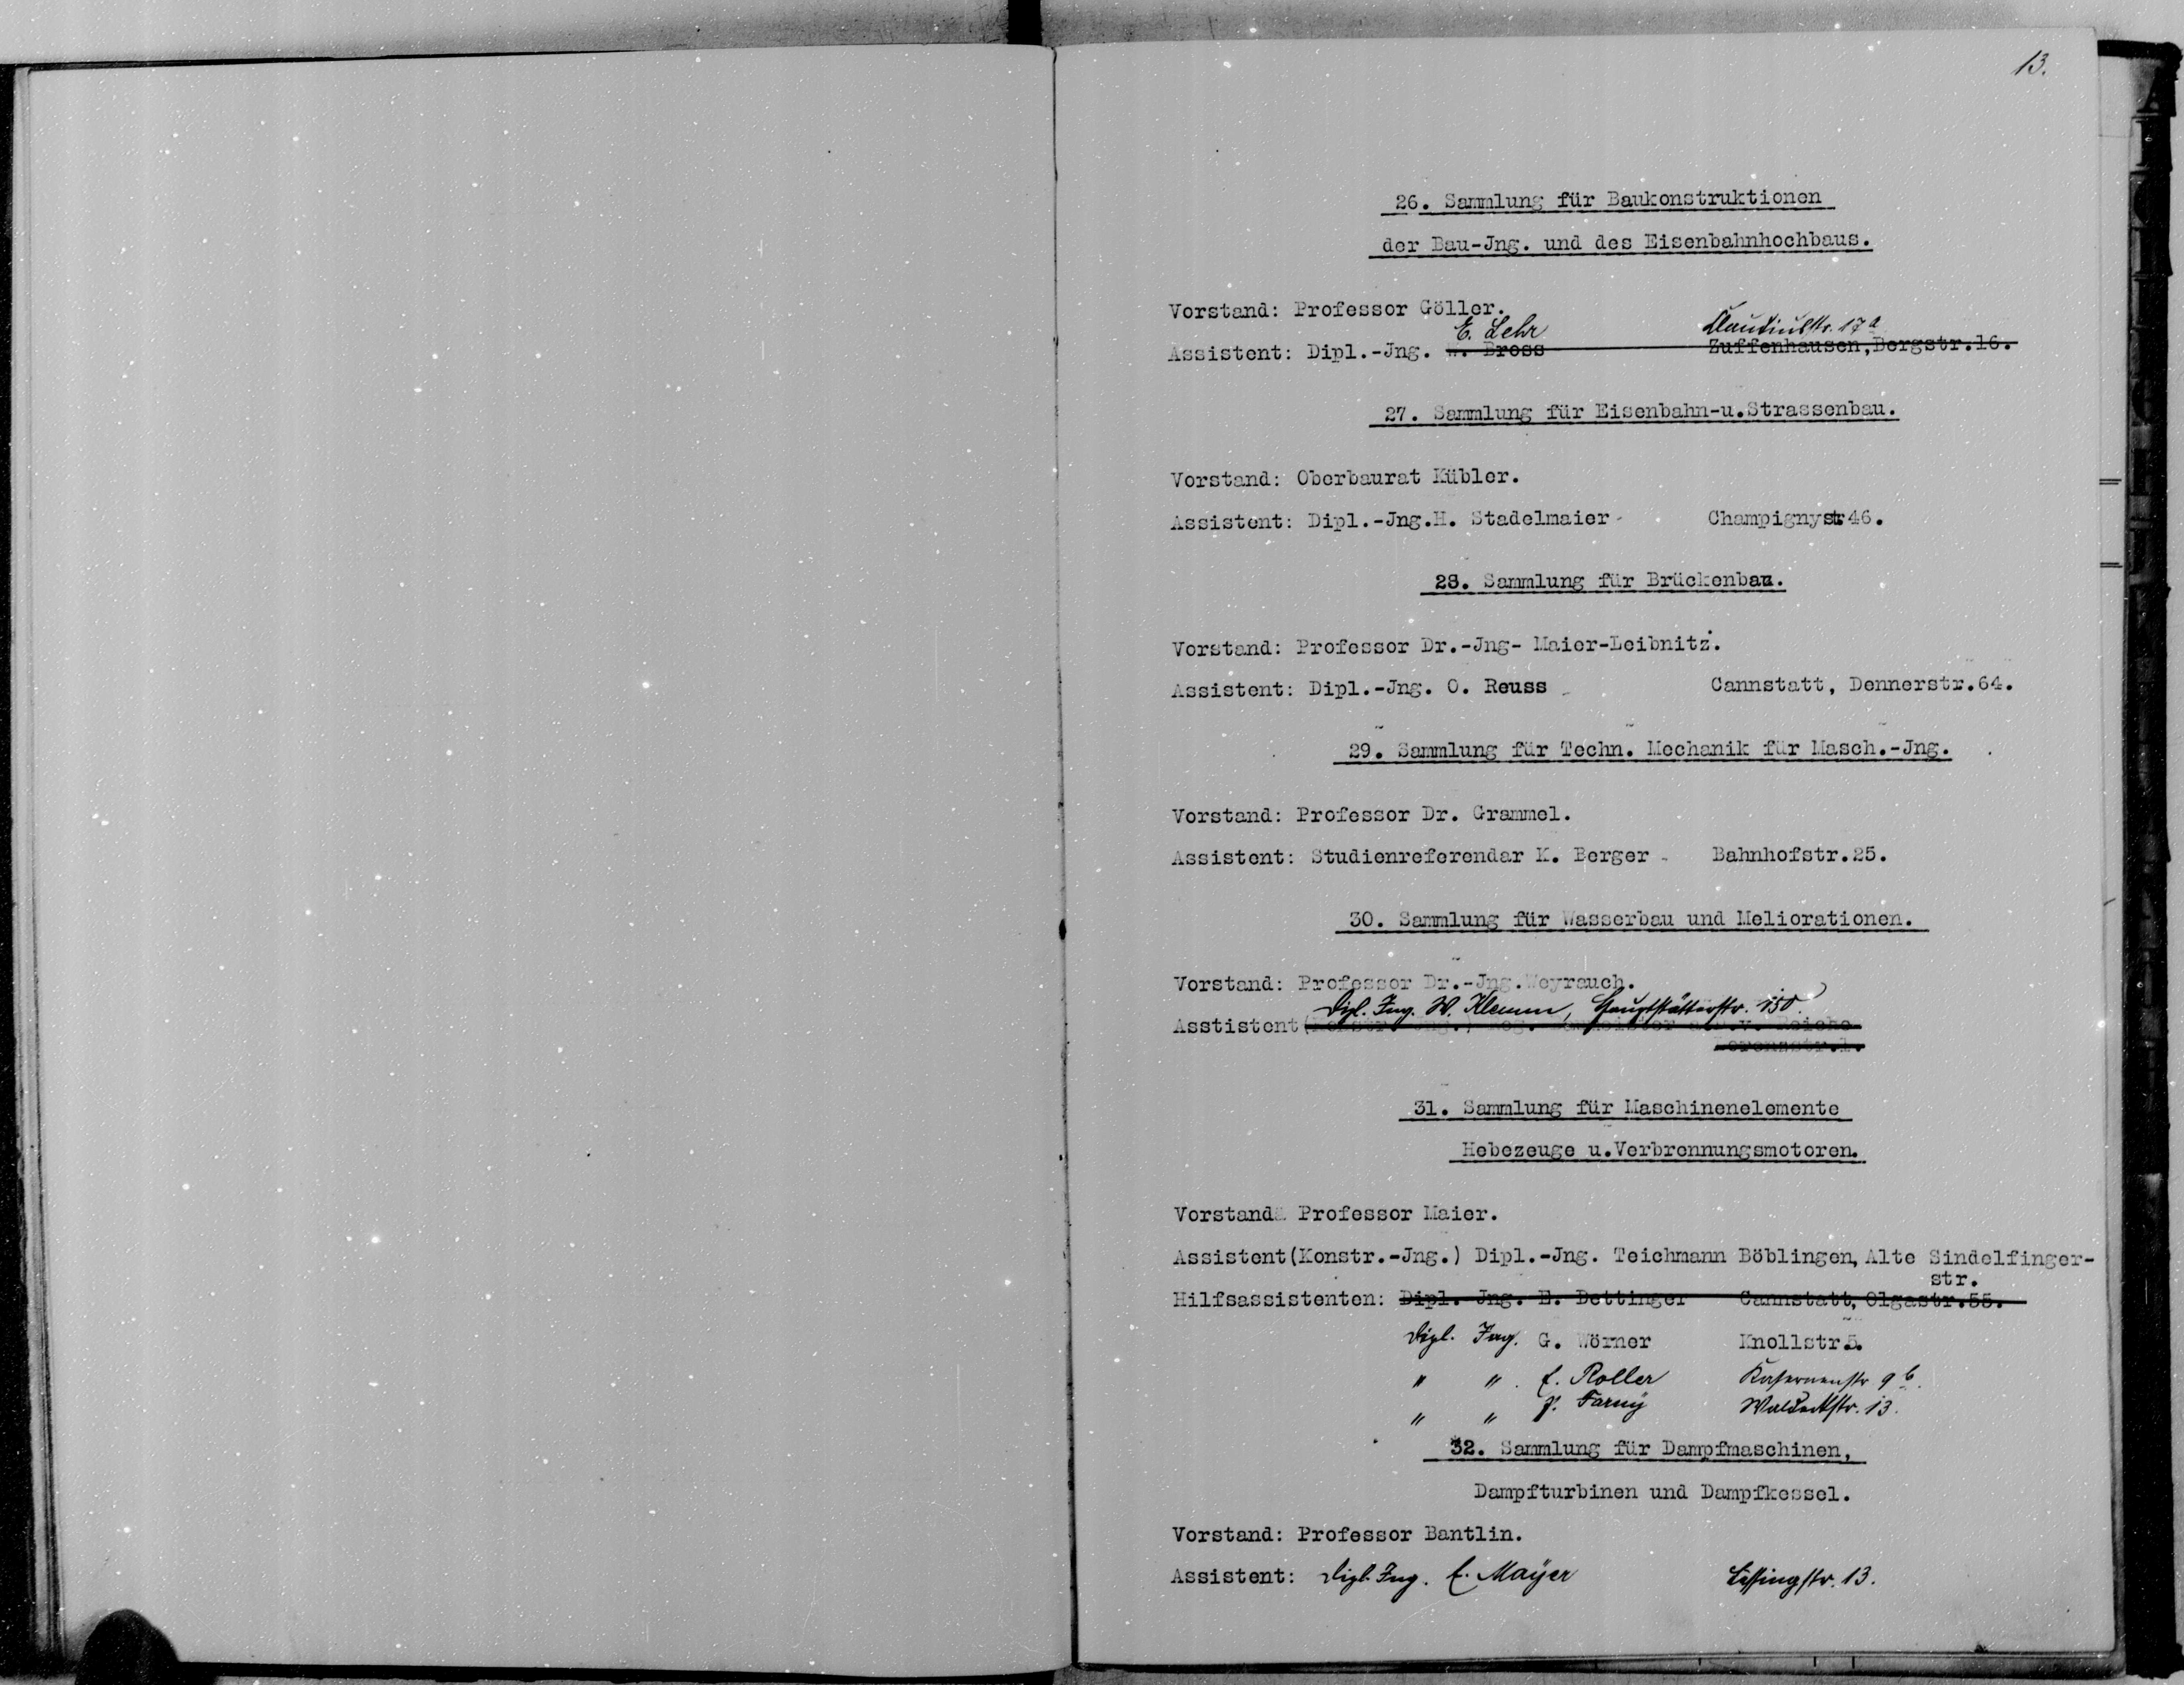 13.
26. Sammlung für Baukonstruktionen
der Bau-Jng. und des Eisenbahnhochbaus.
Vorstand: Professor Göller.
E. Lehr Claudiusstr. 17a
Assistent: Dipl.-Jng. W. Bross Zuffenhausen,Bergstr.16.
27. Sammlung für Eisenbahn-u.Strassenbau.
Vorstand: Oberbaurat Kübler.
Assistent: Dipl.-Jng.H. Stadelmaier Champignystr46.
28. Sammlung für Brückenbau.
Vorstand: Professor Dr.-Jng- Maier-Leibnitz.
Assistent: Dipl.-Jng. O. Reuss Cannstatt, Dennerstr.64.
29. Sammlung für Techn. Mechanik für Masch.-Jng.
Vorstand: Professor Dr. Grammel.
Assistent: Studienreferendar K. Berger Bahnhofstr.25.
30. Sammlung für Wasserbau und Meliorationen.
Vorstand: Professor Dr.-Jng.Weyrauch.
Dipl. Ing. W. Klemm, Hauptstätterstr. 150.
Asstistent
31. Sammlung für Maschinenelemente
Hebezeuge u.Verbrennungsmotoren.
Vorstand Professor Maier.
Assistent(Konstr.-Jng.) Dipl.-Jng. Teichmann Böblingen, Alte Sindelfinger-
str.
Hilfsassistenten: Dipl. Jng. E. Dettinger Cannstatt, Olgastr.55.
Dipl. Ing. G. Wörner Knollstr.5.
" " E. Roller Kasernenstr 9b.
" " Farny Waldeckstr. 13.
32. Sammlung für Dampfmaschinen,
Dampfturbinen und Dampfkessel.
Vorstand: Professor Bantlin.
Assistent: Dipl. Ing. E. Mayer Lessingstr. 13.